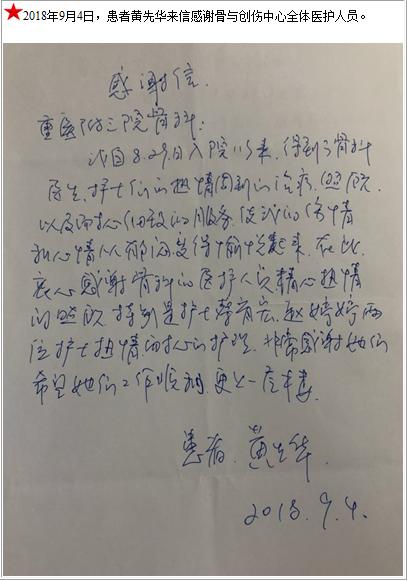 ★2018年9月4日，患者黄先华来信感谢骨与创伤中心全体医护人员。
感谢信
重医附三院骨科：
我自8.29日入院以来，得到了骨科
医生、护士们的热情周到的治疗、照顾，
以及耐心细致的服务，使我的伤情
和心情从郁闷变得愉悦起来，在此
衷心感谢骨科的医护人员精心热情
的照顾，特别是护士
赵婷婷两
位护士热情耐心的护理，非常感谢她们
希望她们工作顺利，更上一层楼
患者：黄先华
2018.9.4.